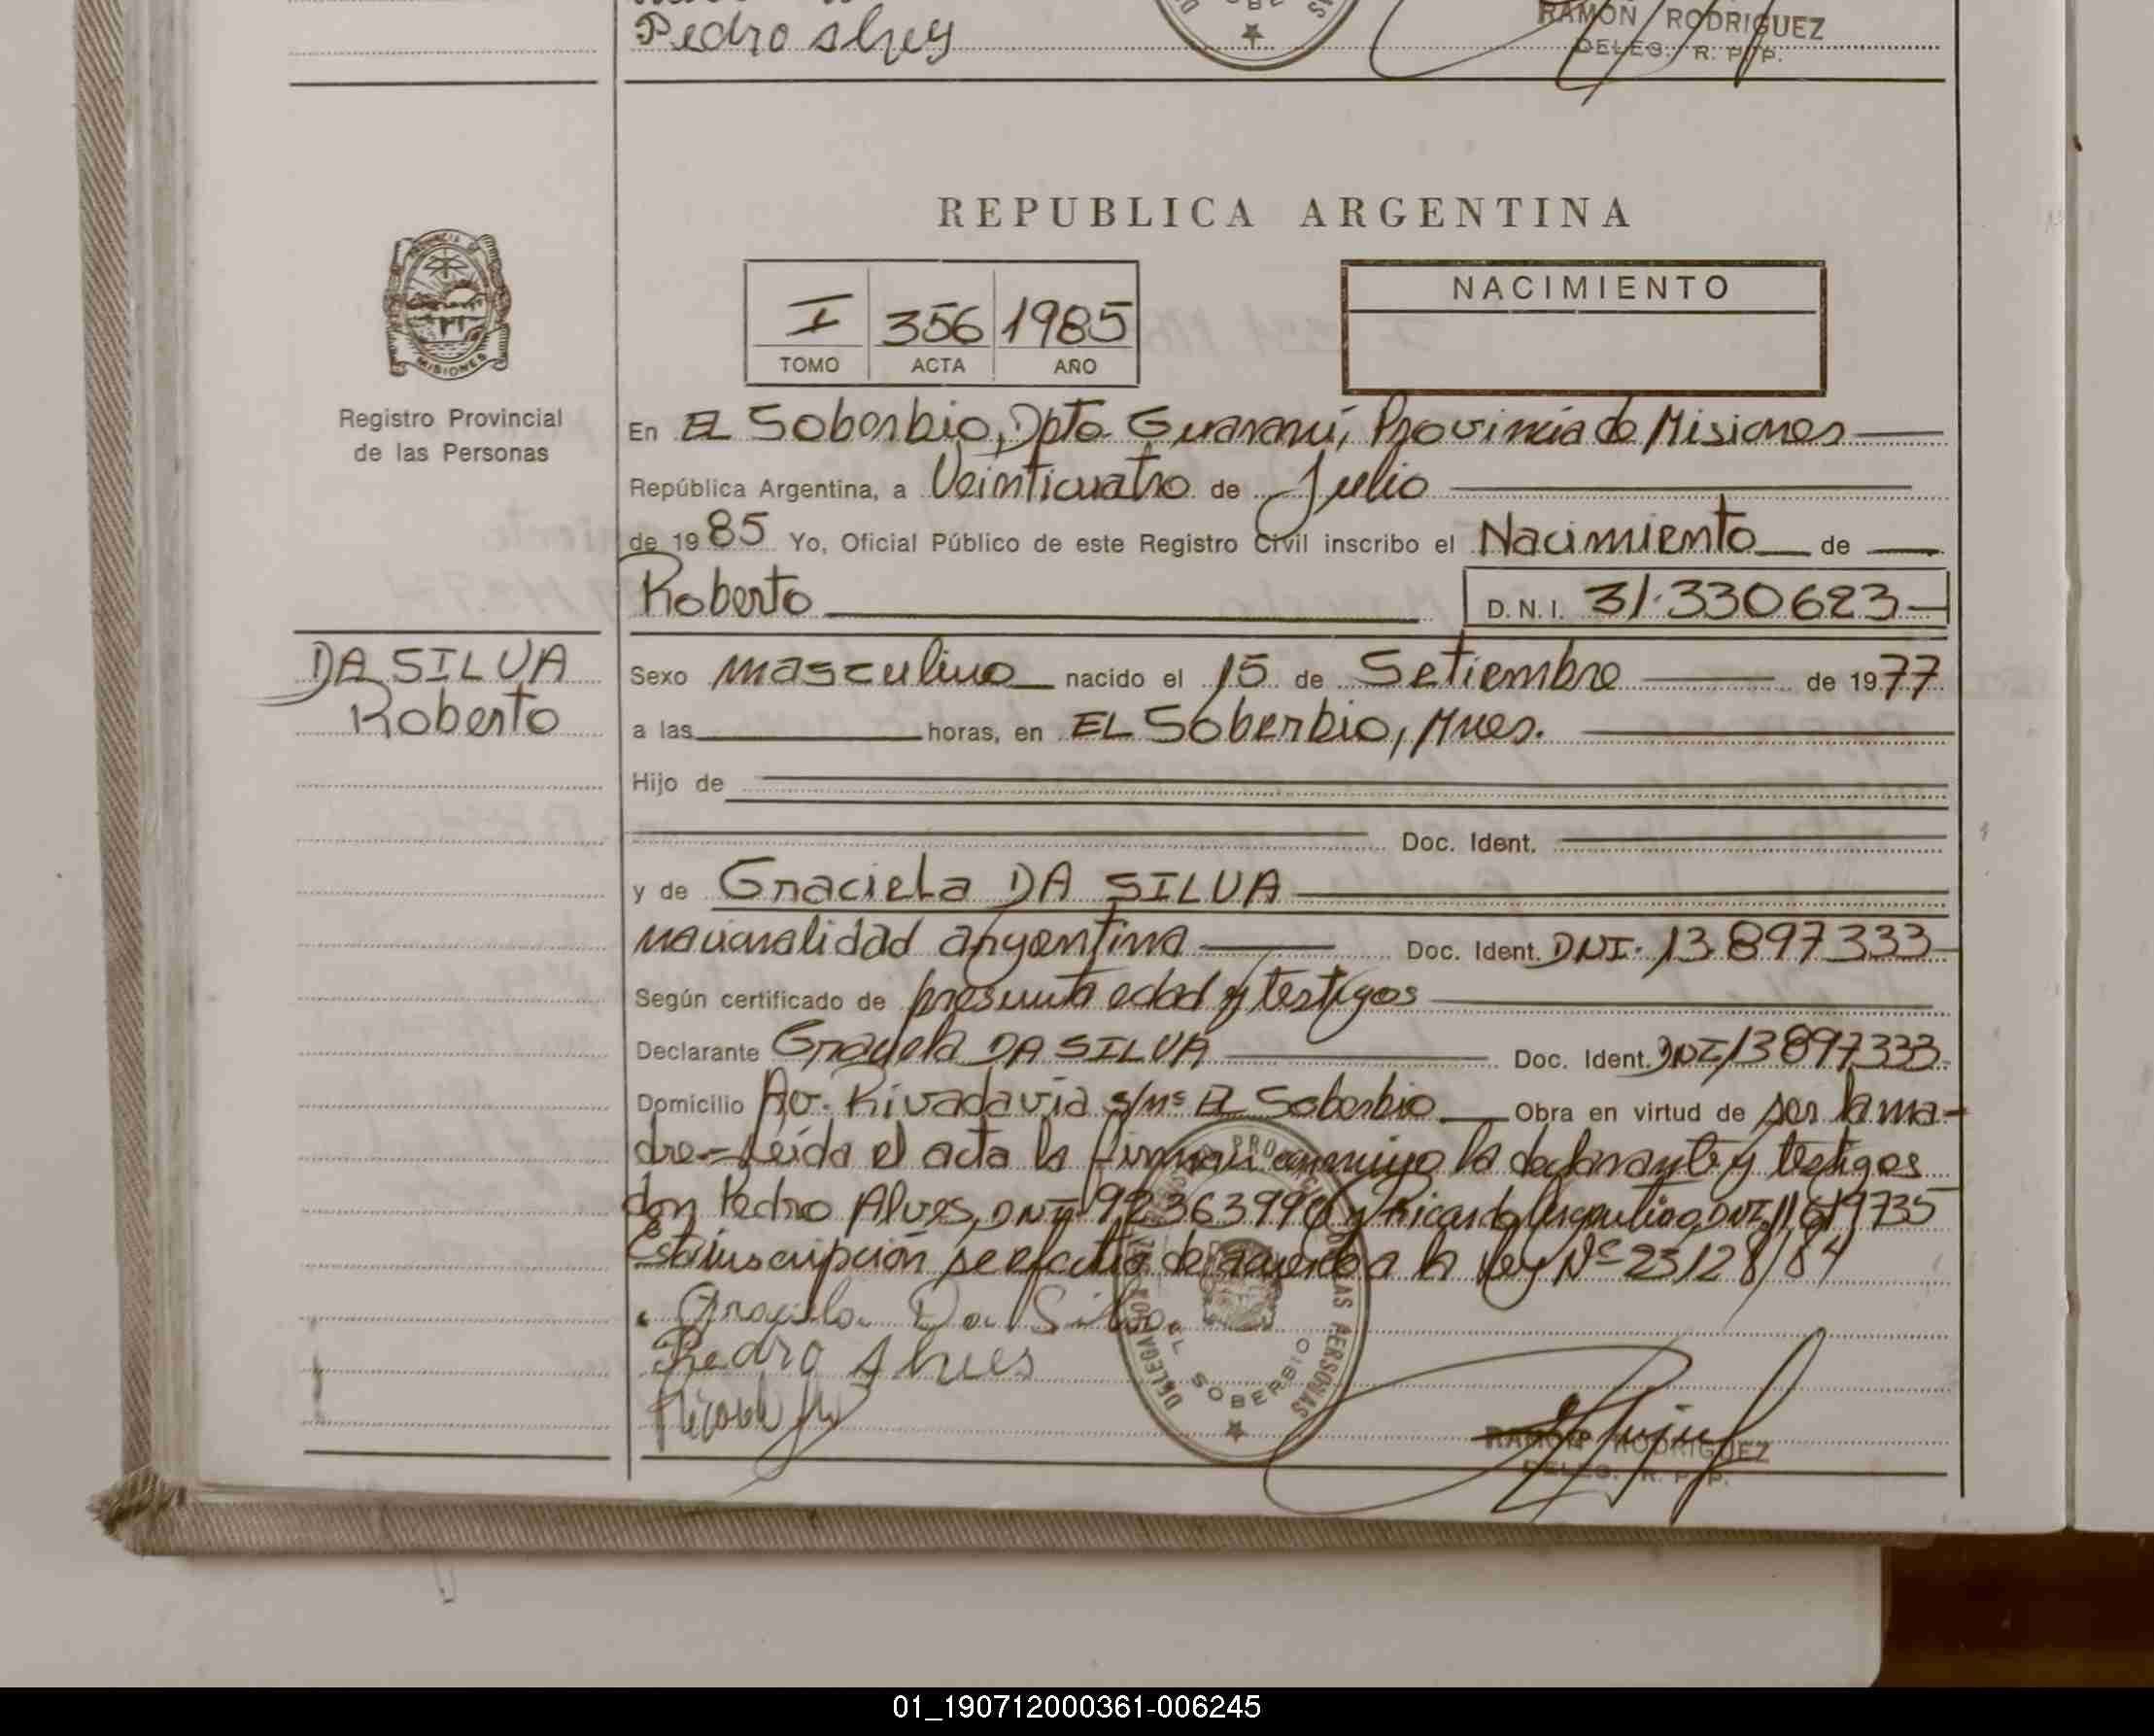 Pedro Alves
RAMON RODRIGUEZ
DELEG. R. P. P.
REPUBLICA ARGENTINA
NACIMIENTO
I 356 1985
TOMO ACTA AÑO
MISIONES
Registro Provincial
de las Personas
En EL Soberbio, Dpto Guaraní, Provincia de Misiones
República Argentina, a Veinticuatro de Julio
de 1985 Yo, Oficial Público de este Registro Civil inscribo el Nacimiento de
Roberto D.N.I. 31.330623
DA SILVA
Roberto
Sexo masculino nacido el 15 de Setiembre de 1977
a las horas, en EL Soberbio, Mnes.
Hijo de
Doc. Ident.
y de Graciela DA SILVA
nacionalidad argentina Doc. Ident. DNI. 13.897333
Según certificado de presunta edad y testigos
Declarante Graciela DA SILVA Doc. Ident. DNI 13897333
Domicilio Av. Rivadavia s/nº EL Soberbio Obra en virtud de ser la ma-
dre=Leída el acta la firman conmigo la declarante y testigos
don Pedro Alves, DNI 92363990 y Ricardo DNI 11619735
Esta inscripción se efectúa de acuerdo a la ley Nº 23128/84
Graciela Da Silva
Pedro Alves
DELEGACION EL SOBERBIO
RAMON RODRIGUEZ
DELEG. R. P. P.
01_190712000361-006245